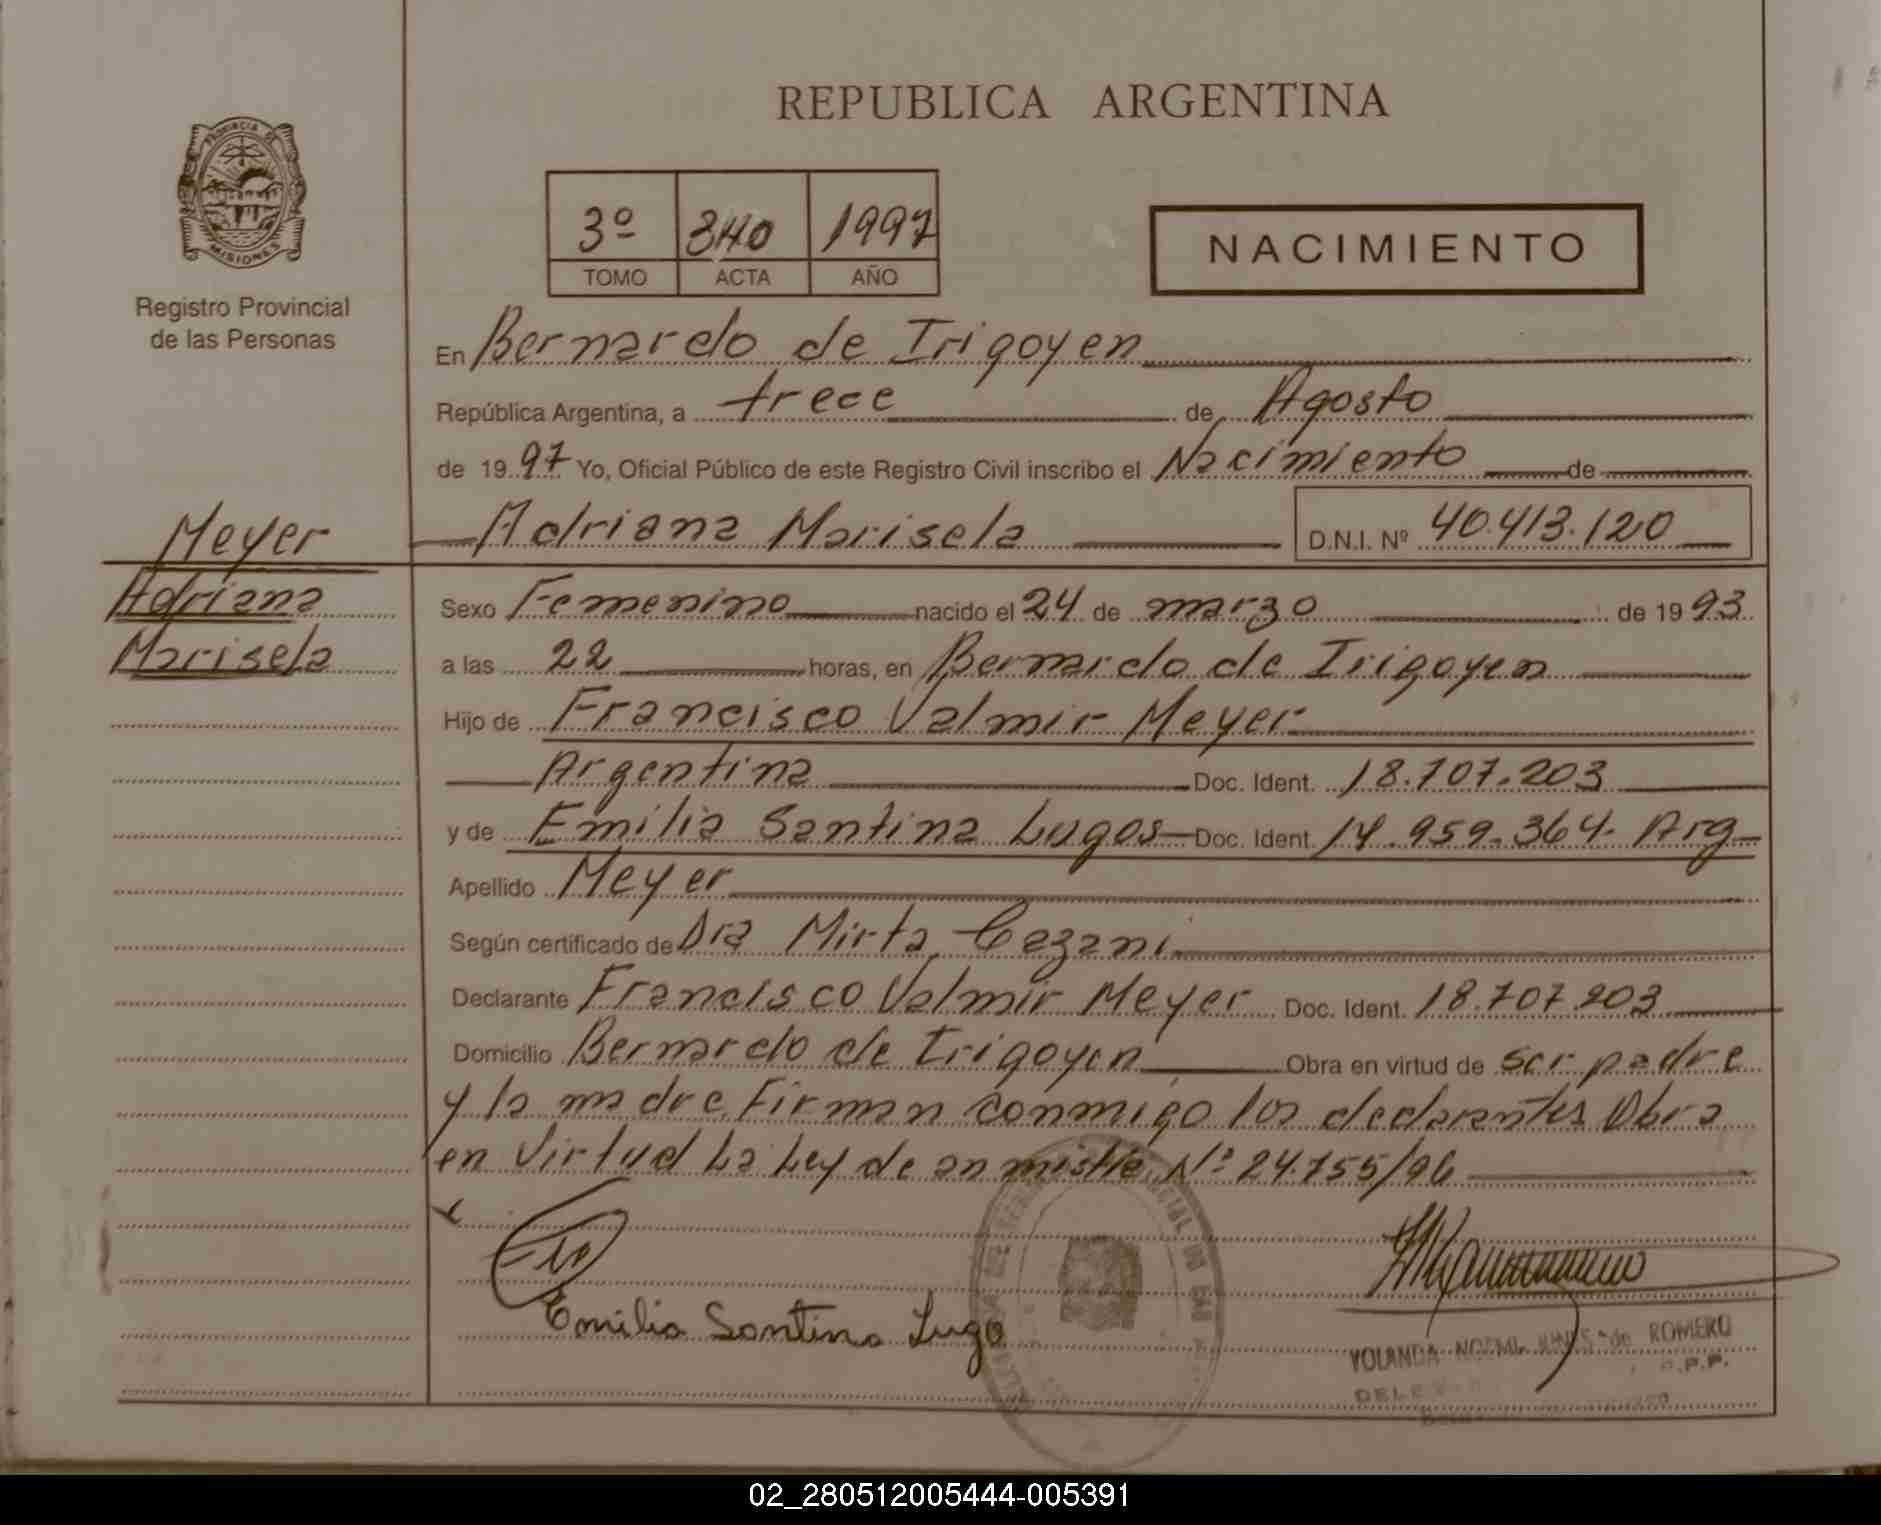 REPUBLICA ARGENTINA
PROVINCIA DE
MISIONES
Registro Provincial
de las Personas
3º 340 1997
TOMO ACTA AÑO
NACIMIENTO
En Bernardo de Irigoyen
República Argentina, a trece de Agosto
de 1997 Yo, Oficial Público de este Registro Civil inscribo el Nacimiento de
Meyer
Adriana Marisela D.N.I. Nº 40.413.120
Adriana
Marisela
Sexo Femenino nacido el 24 de marzo de 1993
a las 22 horas, en Bernardo de Irigoyen
Hijo de Francisco Valmir Meyer
Argentina Doc. Ident. 18.707.203
y de Emilia Santina Lugos Doc. Ident. 14.959.364. Arg
Apellido Meyer
Según certificado de Dra Mirta Cazani
Declarante Francisco Valmir Meyer Doc. Ident. 18.707.203
Domicilio Bernardo de Irigoyen Obra en virtud de ser padre
y la madre. Firman conmigo los declarantes Obra
en Virtud La Ley de anmistia Nº 24.755/96
Emilia Santina Lugo
YOLANDA NOEMI de ROMERO
02_280512005444-005391